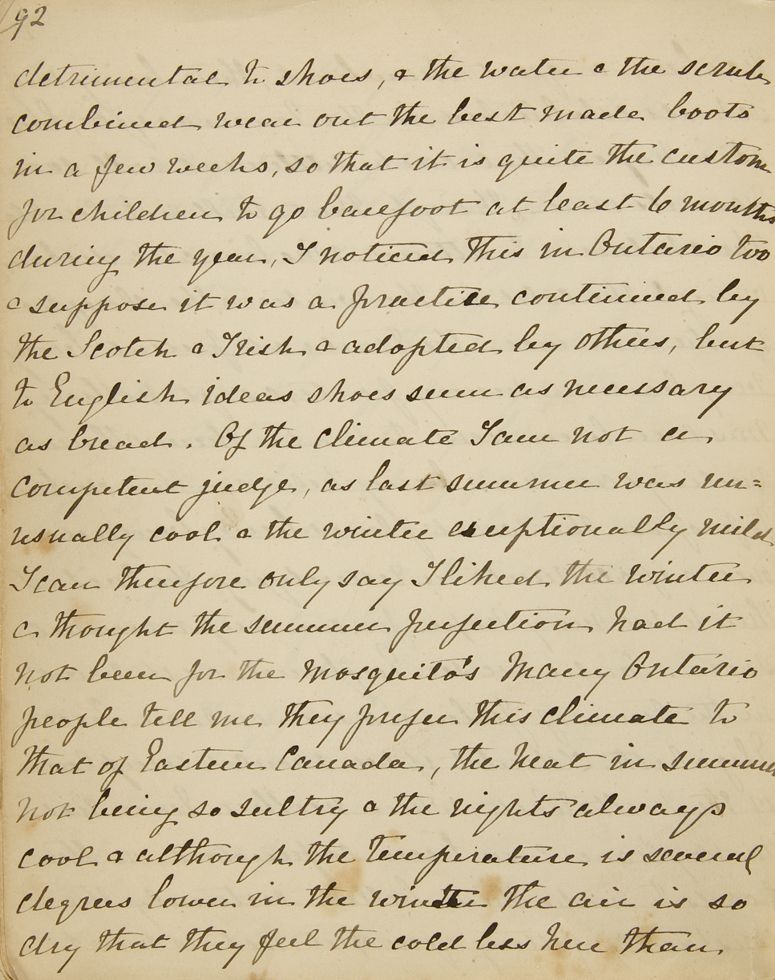 92
detrimental to shoes, & the water & the scrub
combined wear out the best made boots
in a few weeks, so that it is quite the custom
for children to go barefoot at least 6 months
during the year, I noticed this in Ontario too
& suppose it was a practice continued by
the Scotch & Irish & adopted by others, but
to English ideas shoes seem as necessary
as bread. Of the climate I am not a
competent judge, as last summer was un=
usually cool & the winter exceptionally mild
I can therefore only say I liked the winter
& thought the summer perfection had it
not been for the mosquito's Many Ontario
people tell me they prefer this climate to
that of Eastern Canada, the heat in summer
not being so sultry & the nights always
cool & although the temperature is several
degrees lower in the winter the air is so
dry that they feel the cold less here than